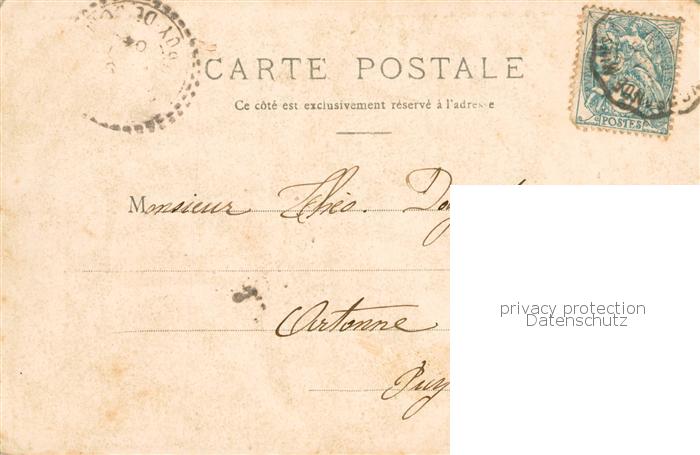 PUY DE
CARTE POSTALE
Ce côté est exclusivement réservé à l'adresse
POSTES
Monsieur Théo.
Artonne
Puy
privacy protection
Datenschutz